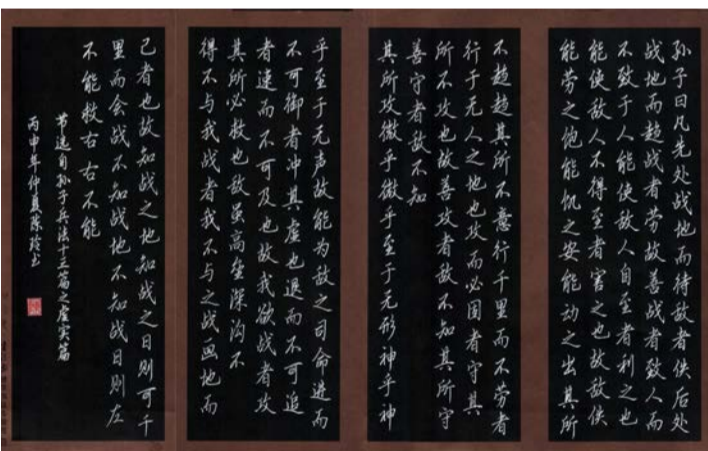 孙子曰凡先处战地而待敌者佚后处
战地而趋战者劳故善战者致人而
不致于人能使敌人自至者利之也
能使敌人不得至者害之也故敌佚
能劳之饱能饥之安能动之出其所
不趋趋其所不意行千里而不劳者
行于无人之地也攻而必固者守其
所不攻也故善攻者敌不知其所守
善守者敌不知
其所攻微乎微乎至于无形神乎神
乎至于无声故能为敌之司命进而
不可御者冲其虚也退而不可追
者速而不可及也故我欲战者攻
其所必救也敌虽高垒深沟不
得不与我战者我不与之战画地而
己者也故知战之地知战之日则可千
里而会战不知战地不知战日则左
不能救右右不能
节选自孙子兵法十三篇之虚实篇
丙申年仲夏荣玲书